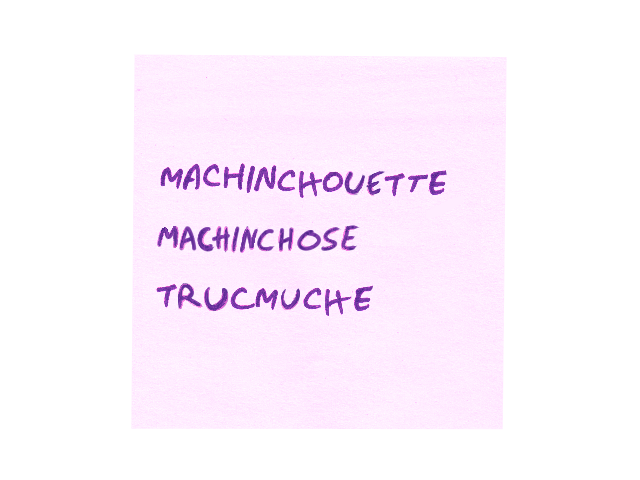 MACHINCHOUETTE
MACHINCHOSE
TRUCMUCHE